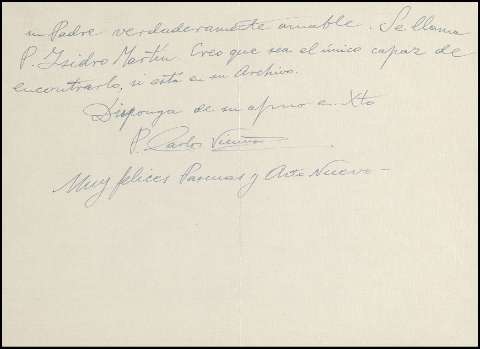 un Padre verdaderamente amable. Se llama
P. Isidro Martín. Creo que sea el único capaz de
encontrarlo, si está en su Archivo.
Disponga de su afmo en Xto
P. Carlos Vicuña
Muy felices Pascuas y Año Nuevo -